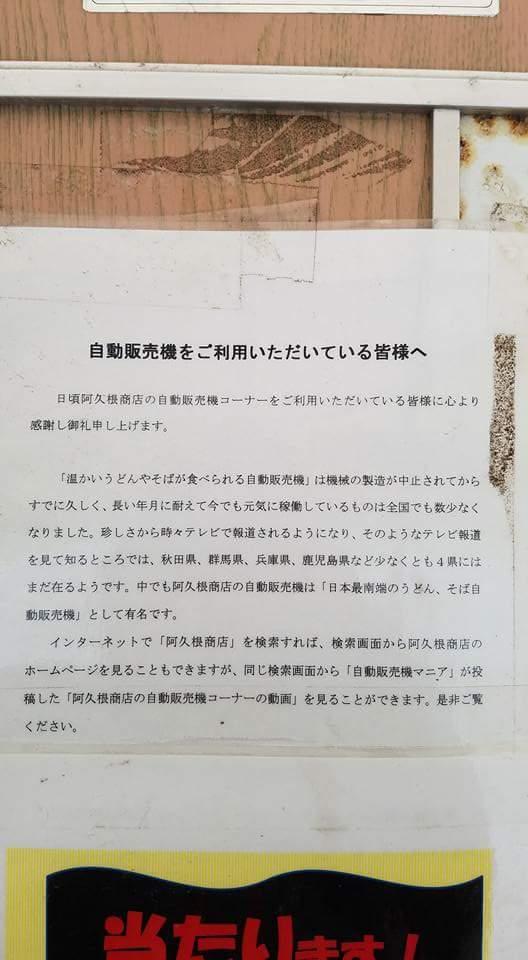 自動販売機をご利用いただいている皆様へ
日頃阿久根商店の自動販売機コーナーをご利用いただいている皆様に心より
感謝し御礼申し上げます。
「温かいうどんやそばが食べられる自動販売機」は機械の製造が中止されてから
すでに久しく、長い年月に耐えて今でも元気に稼働しているものは全国でも数少なく
なりました。珍しさから時々テレビで報道されるようになり、そのようなテレビ報道
を見て知るところでは、秋田県、群馬県、兵庫県、鹿児島県など少なくとも４県には
まだ在るようです。中でも阿久根商店の自動販売機は「日本最南端のうどん、そば自
動販売機」として有名です。
インターネットで「阿久根商店」を検索すれば、検索画面から阿久根商店の
ホームページを見ることもできますが、同じ検索画面から「自動販売機マニア」が投
稿した「阿久根商店の自動販売機コーナーの動画」を見ることができます。是非ご覧
ください。
当たります！